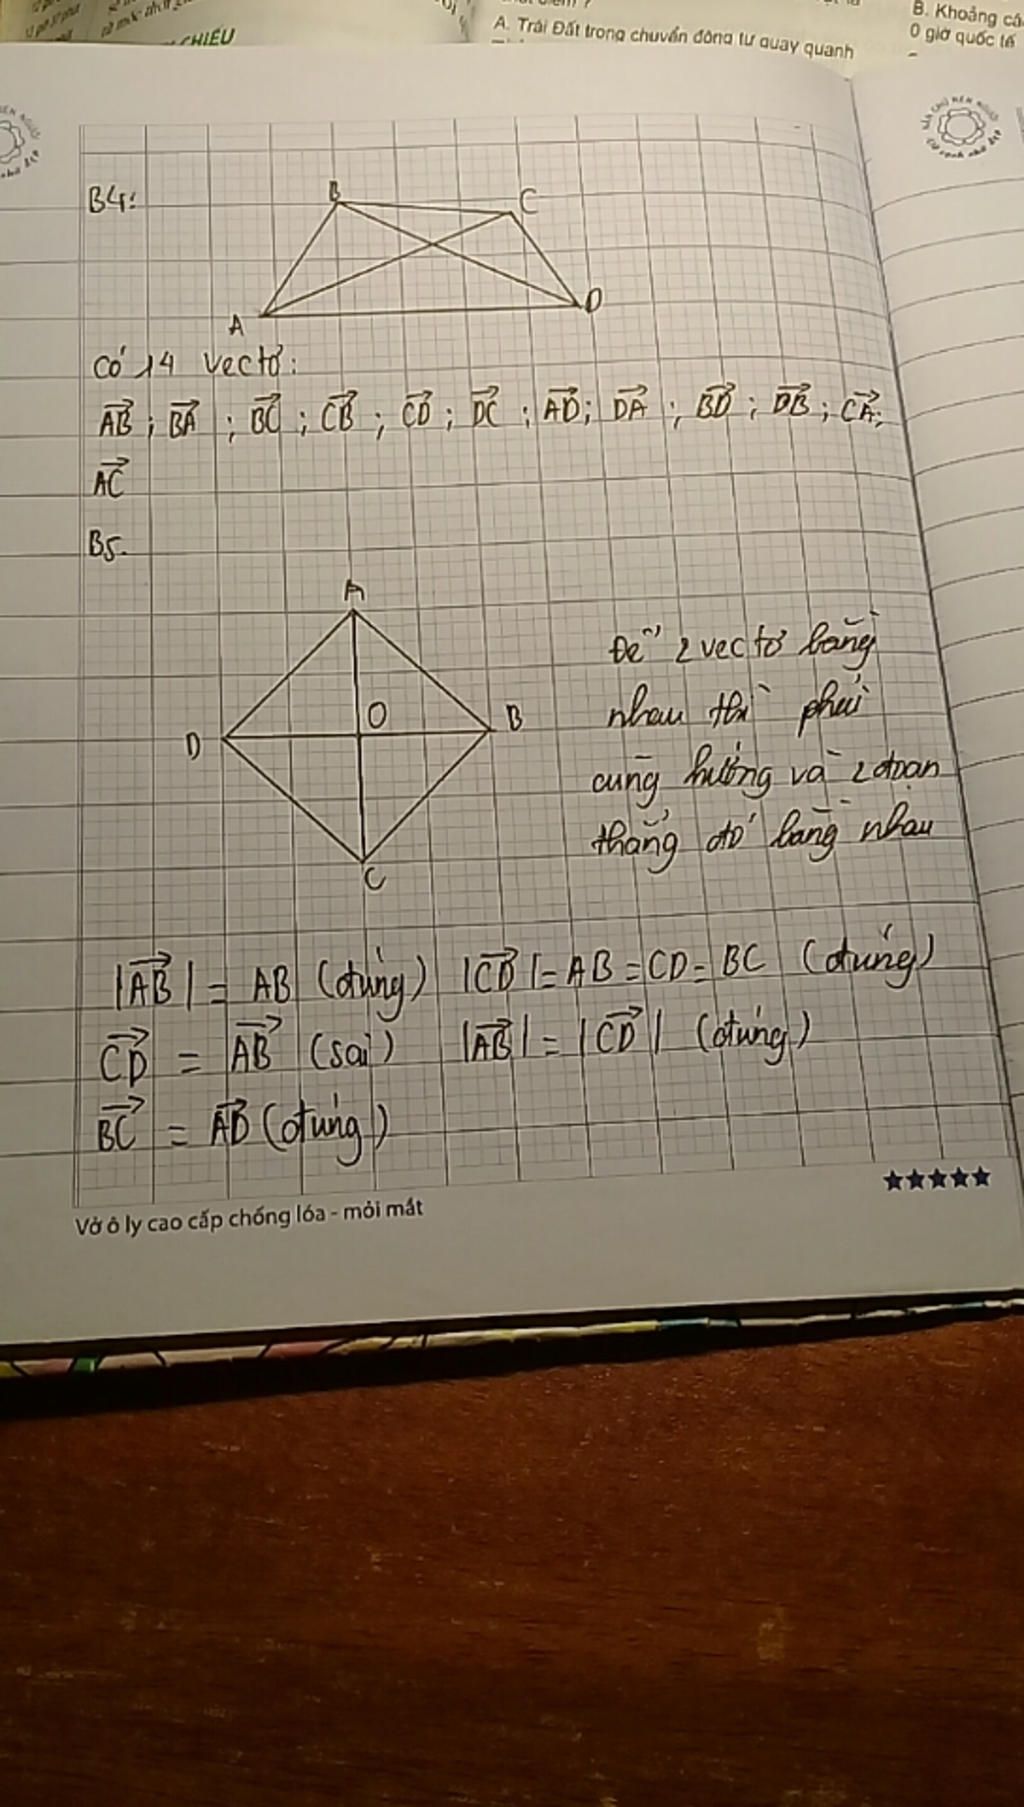 CHIẾU
A. Trái Đất trong chuyển động tự quay quanh
B. Khoảng cá
0 giờ quốc tế
B4:
B
C
A
D
Có 14 vectơ:
AB ; BA ; BC ; CB ; CD ; DC ; AD ; DA ; BD ; DB ; CA ;
AC
B5.
A
D
O
B
C
Để 2 vectơ bằng
nhau thì phải
cùng hướng và 2 đoạn
thẳng đó bằng nhau
|AB| = AB (đúng) |CD| = AB = CD = BC (đúng)
CD = AB (sai) |AB| = |CD| (đúng)
BC = AD (đúng)
Vở ô ly cao cấp chống lóa - mỏi mắt